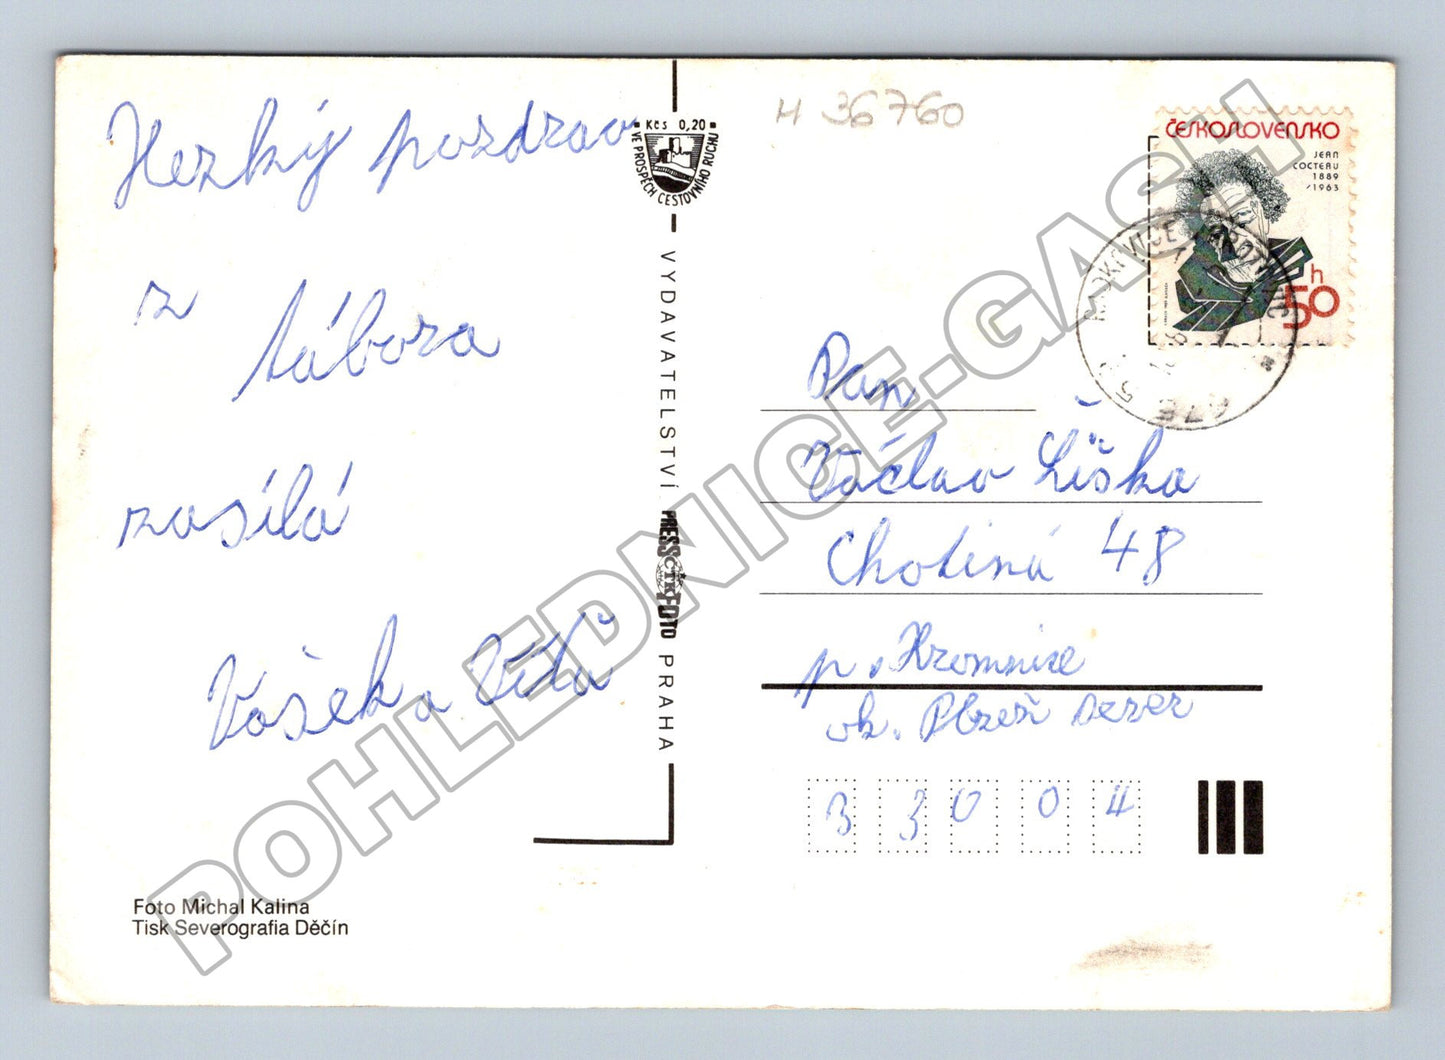 Hezký pozdrav
z tábora
zasílá
Vašek a Víťa
Kčs 0,20
VE PROSPĚCH CESTOVNÍHO RUCHU
VYDAVATELSTVÍ PRESSFOTO PRAHA
ČTK
H 36760
ČESKOSLOVENSKO
JEAN
COCTEAU
1889
/1963
50 h
Pan
Václav Liška
Chotiná 48
p. Hromnice
ok. Plzeň sever
330 04
Foto Michal Kalina
Tisk Severografia Děčín
POHLEDNICE-GASH